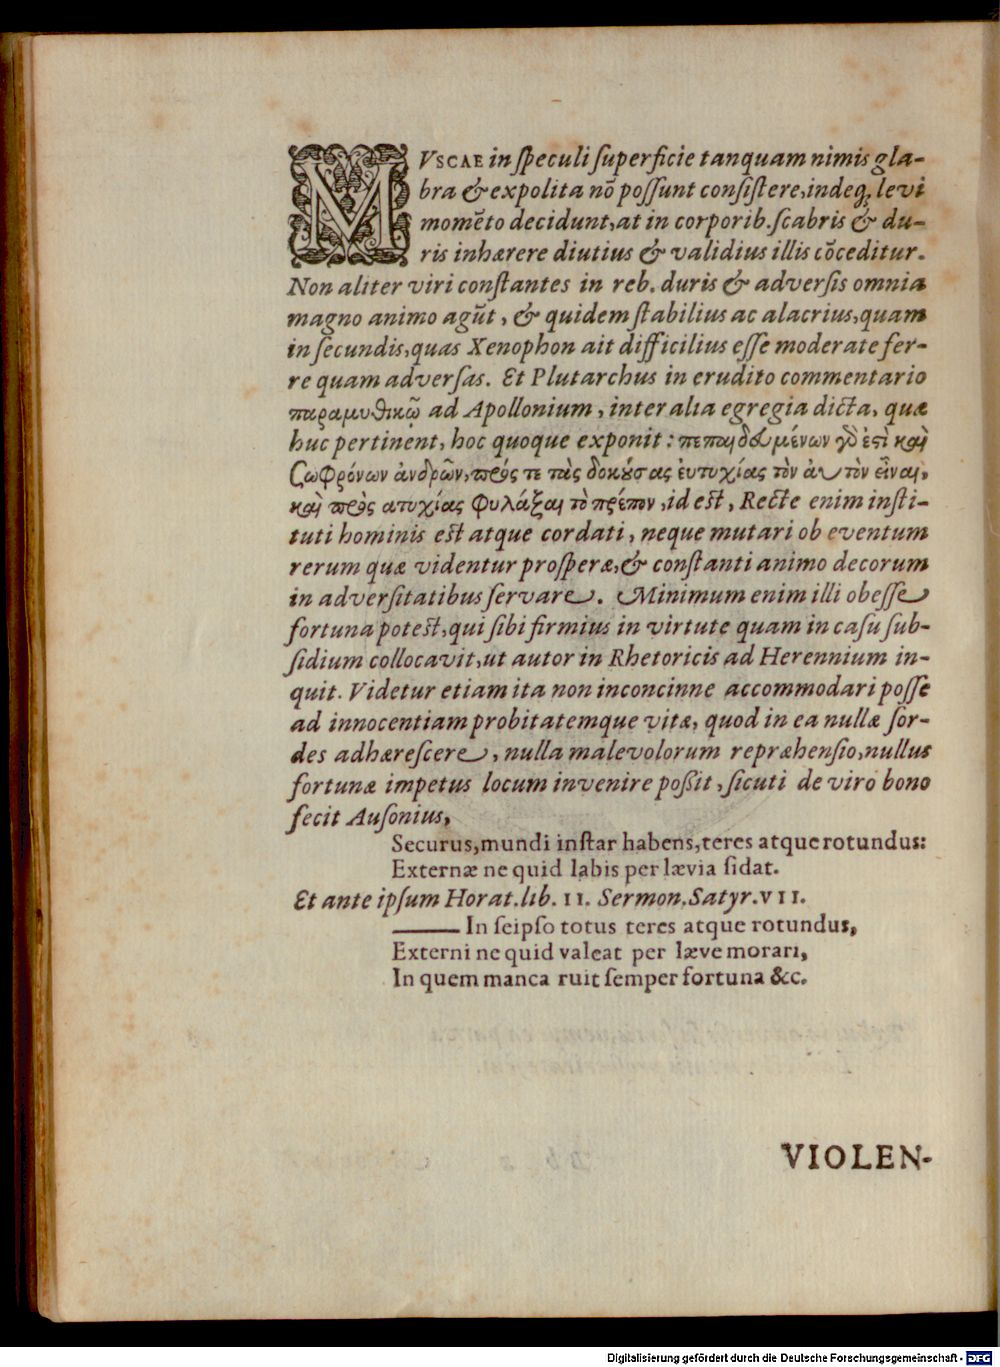 MVSCAE in ſpeculi ſuperficie tanquam nimis gla-
bra & expolita nõ poſſunt conſiſtere, indeq́; levi
momẽto decidunt, at in corporib. ſcabris & du-
ris inhærere diutius & validius illis cõceditur.
Non aliter viri conſtantes in reb. duris & adverſis omnia
magno animo agũt, & quidem ſtabilius ac alacrius, quam
in ſecundis, quas Xenophon ait difficilius eſſe moderate fer-
re quam adverſas. Et Plutarchus in erudito commentario
παραμυθικῷ ad Apollonium, inter alia egregia dicta, quæ
huc pertinent, hoc quoque exponit: πεπαιδευμένων γδ ἐςὶ καὶ
ζωφρόνων ἀνδρῶν, πρός τε τὰς δοκούσας ἐυτυχίας τὸν ἀυτὸν εἶναι,
καὶ πρὸς ατυχίας φυλάξαι τὸ πρέπον, id eſt, Recte enim inſti-
tuti hominis eſt atque cordati, neque mutari ob eventum
rerum quæ videntur proſperæ, & conſtanti animo decorum
in adverſitatibus ſervare. Minimum enim illi obeſſe
fortuna poteſt, qui ſibi firmius in virtute quam in caſu ſub-
ſidium collocavit, ut autor in Rhetoricis ad Herennium in-
quit. Videtur etiam ita non inconcinne accommodari poſſe
ad innocentiam probitatemque vitæ, quod in ea nullæ ſor-
des adhæreſcere, nulla malevolorum repræhenſio, nullus
fortunæ impetus locum invenire poßit, ſicuti de viro bono
fecit Auſonius,
Securus, mundi inſtar habens, teres atque rotundus:
Externæ ne quid labis per lævia ſidat.
Et ante ipſum Horat. lib. II. Sermon. Satyr. VII.
—— In ſeipſo totus teres atque rotundus,
Externi ne quid valeat per læve morari,
In quem manca ruit ſemper fortuna &c.
VIOLEN-
Digitalisierung gefördert durch die Deutsche Forschungsgemeinschaft - DFG